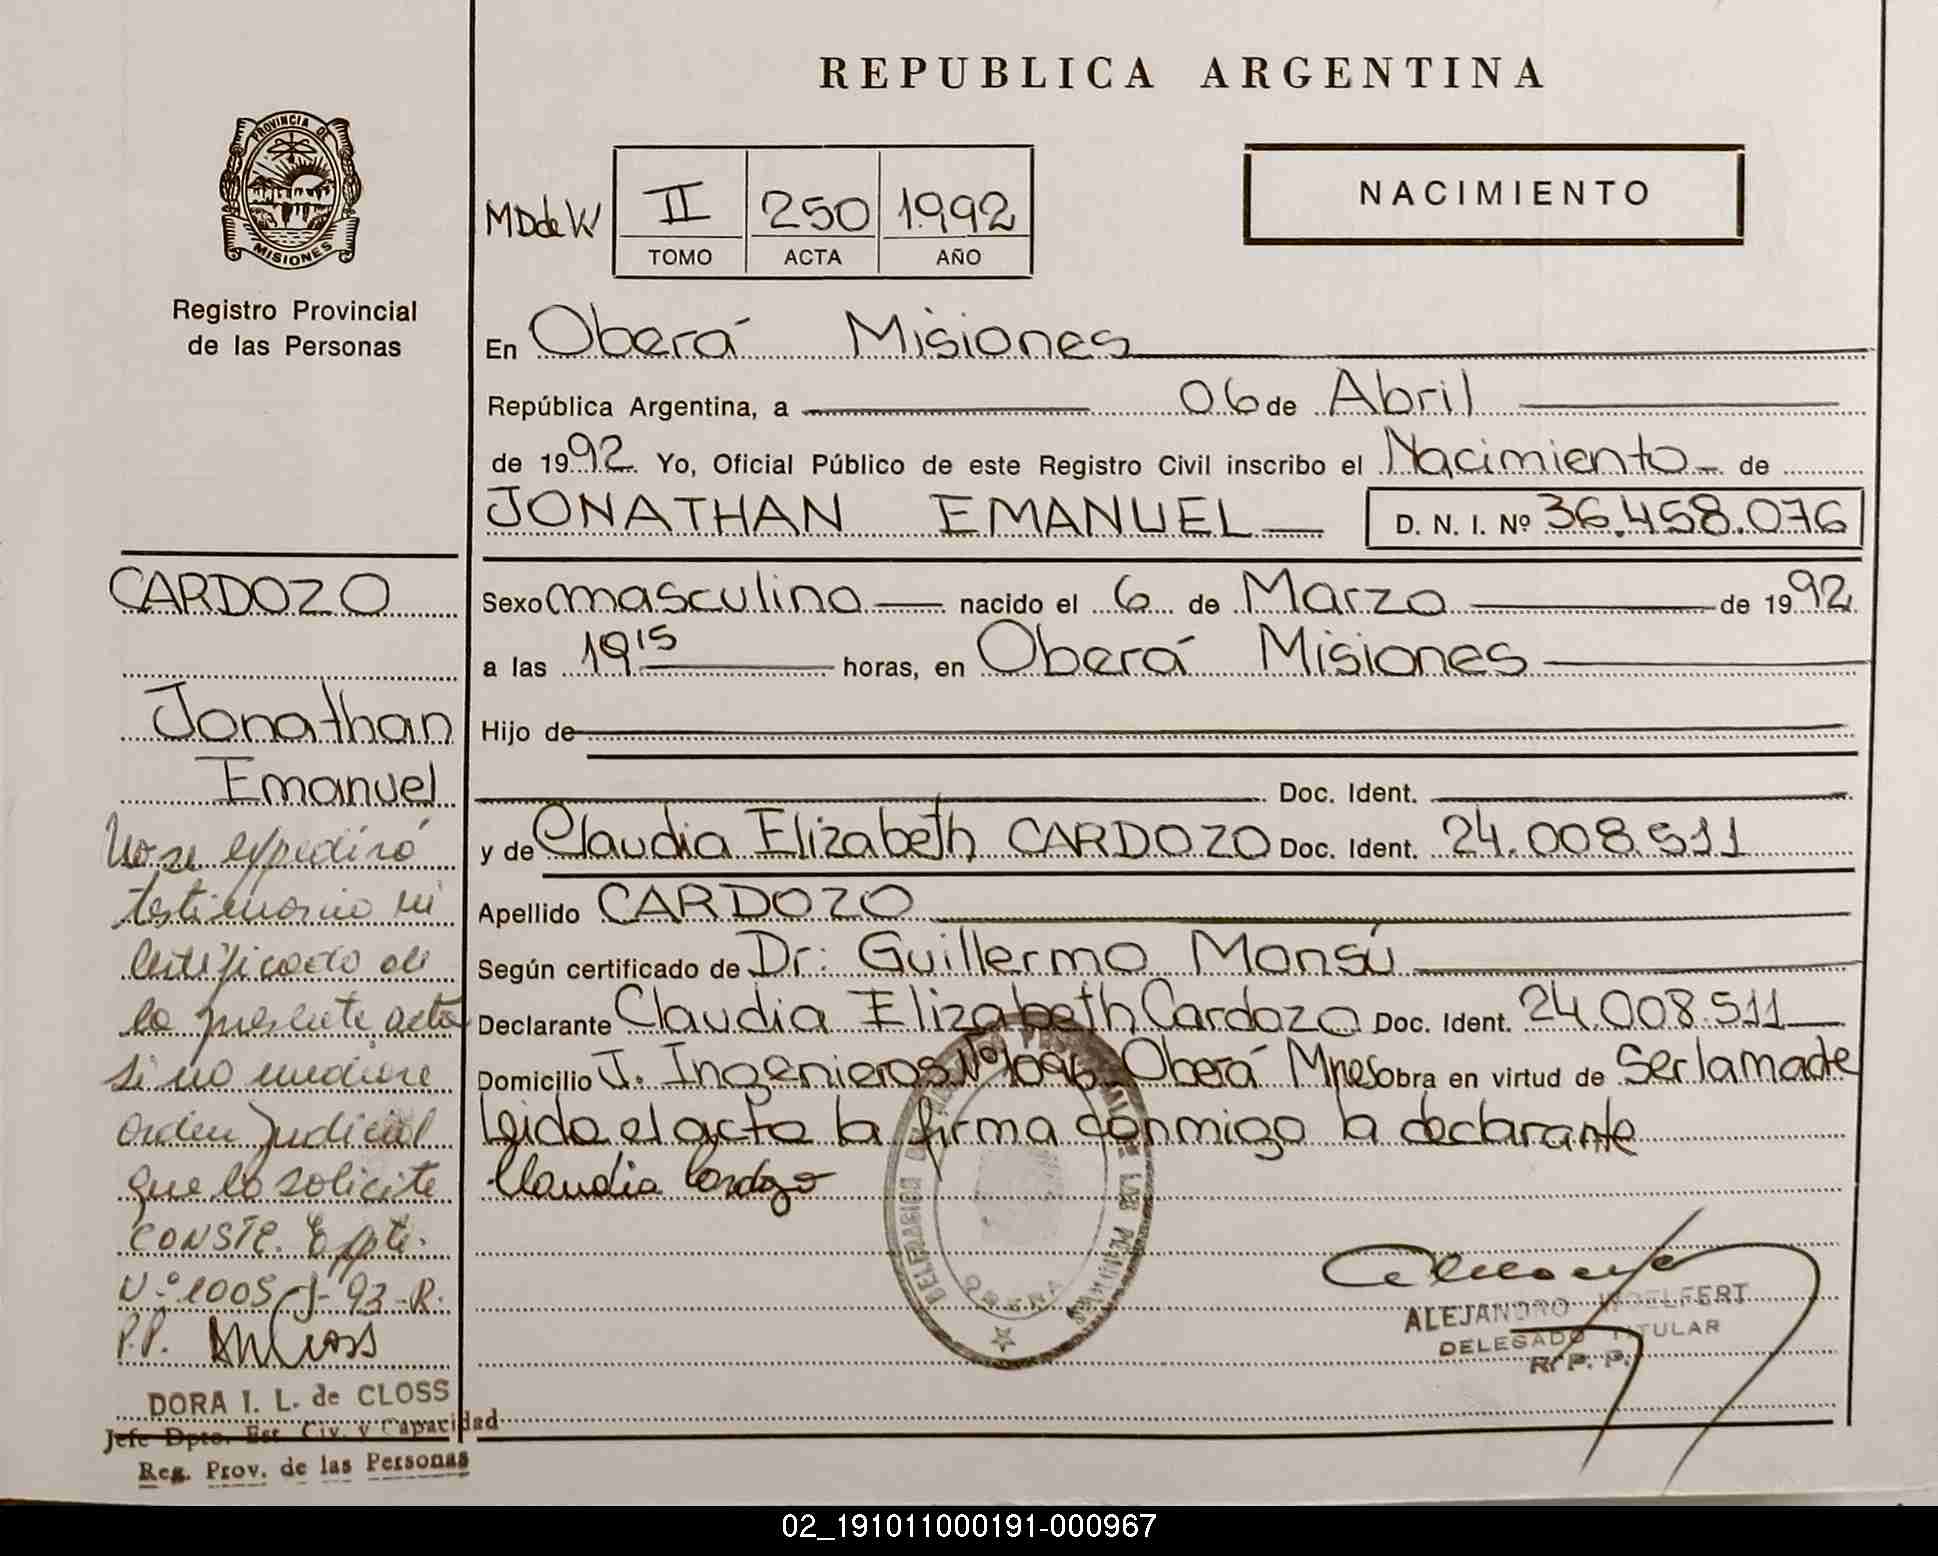 REPUBLICA ARGENTINA
PROVINCIA DE
MISIONES
Registro Provincial
de las Personas
NACIMIENTO
MDdeW II 250 1992
TOMO ACTA AÑO
En Oberá Misiones
República Argentina, a 06 de Abril
de 1992 Yo, Oficial Público de este Registro Civil inscribo el Nacimiento de
JONATHAN EMANUEL D. N. I. Nº 36.458.076
CARDOZO
Jonathan
Emanuel
No se expedirá
testimonio ni
certificado de
la presente acta
si no mediare
orden judicial
que lo solicite
CONSTE. Expte.
Nº 1005-J-93-R.
P.P.
DORA I. L. de CLOSS
Jefe Dpto. Est. Civ. y Capacidad
Reg. Prov. de las Personas
Sexo masculino nacido el 6 de Marzo de 1992
a las 19 15 horas, en Oberá Misiones
Hijo de
Doc. Ident.
y de Claudia Elizabeth CARDOZO Doc. Ident. 24.008.511
Apellido CARDOZO
Según certificado de Dr: Guillermo Mansú
Declarante Claudia Elizabeth Cardozo Doc. Ident. 24.008.511
Domicilio J. Ingenieros Nº 1096 Oberá Mnes Obra en virtud de ser la madre
Leida el acta la firma conmigo la declarante
Claudia Cardozo
ALEJANDRO
DELEGADO TITULAR
R. P. P.
02_191011000191-000967